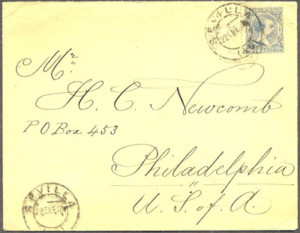 SEVILLA
Mr.
H. C. Newcomb
P O Box 453
Philadelphia
U. S. of A.
SEVILLA